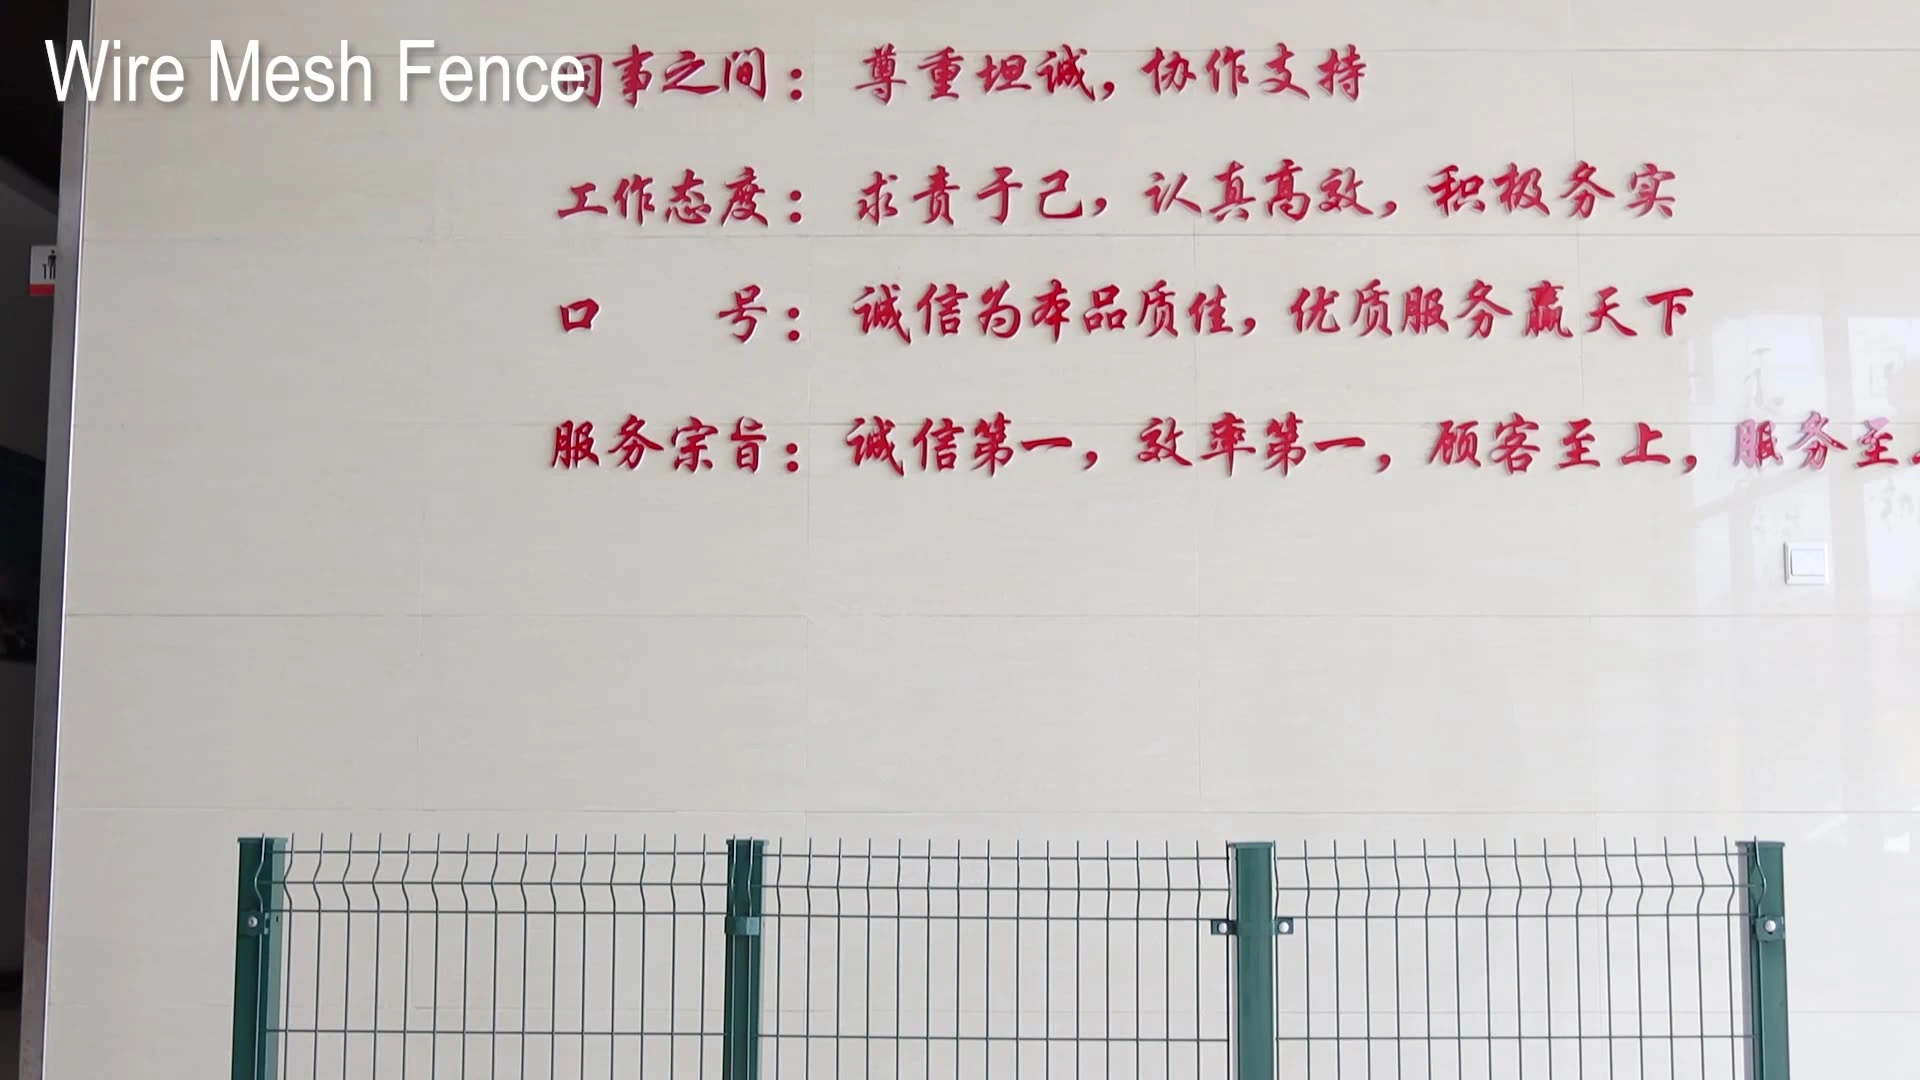 Wire Mesh Fence
同事之间：尊重坦诚，协作支持
工作态度：求责于己，认真高效，积极务实
口　　号：诚信为本品质佳，优质服务赢天下
服务宗旨：诚信第一，效率第一，顾客至上，服务至